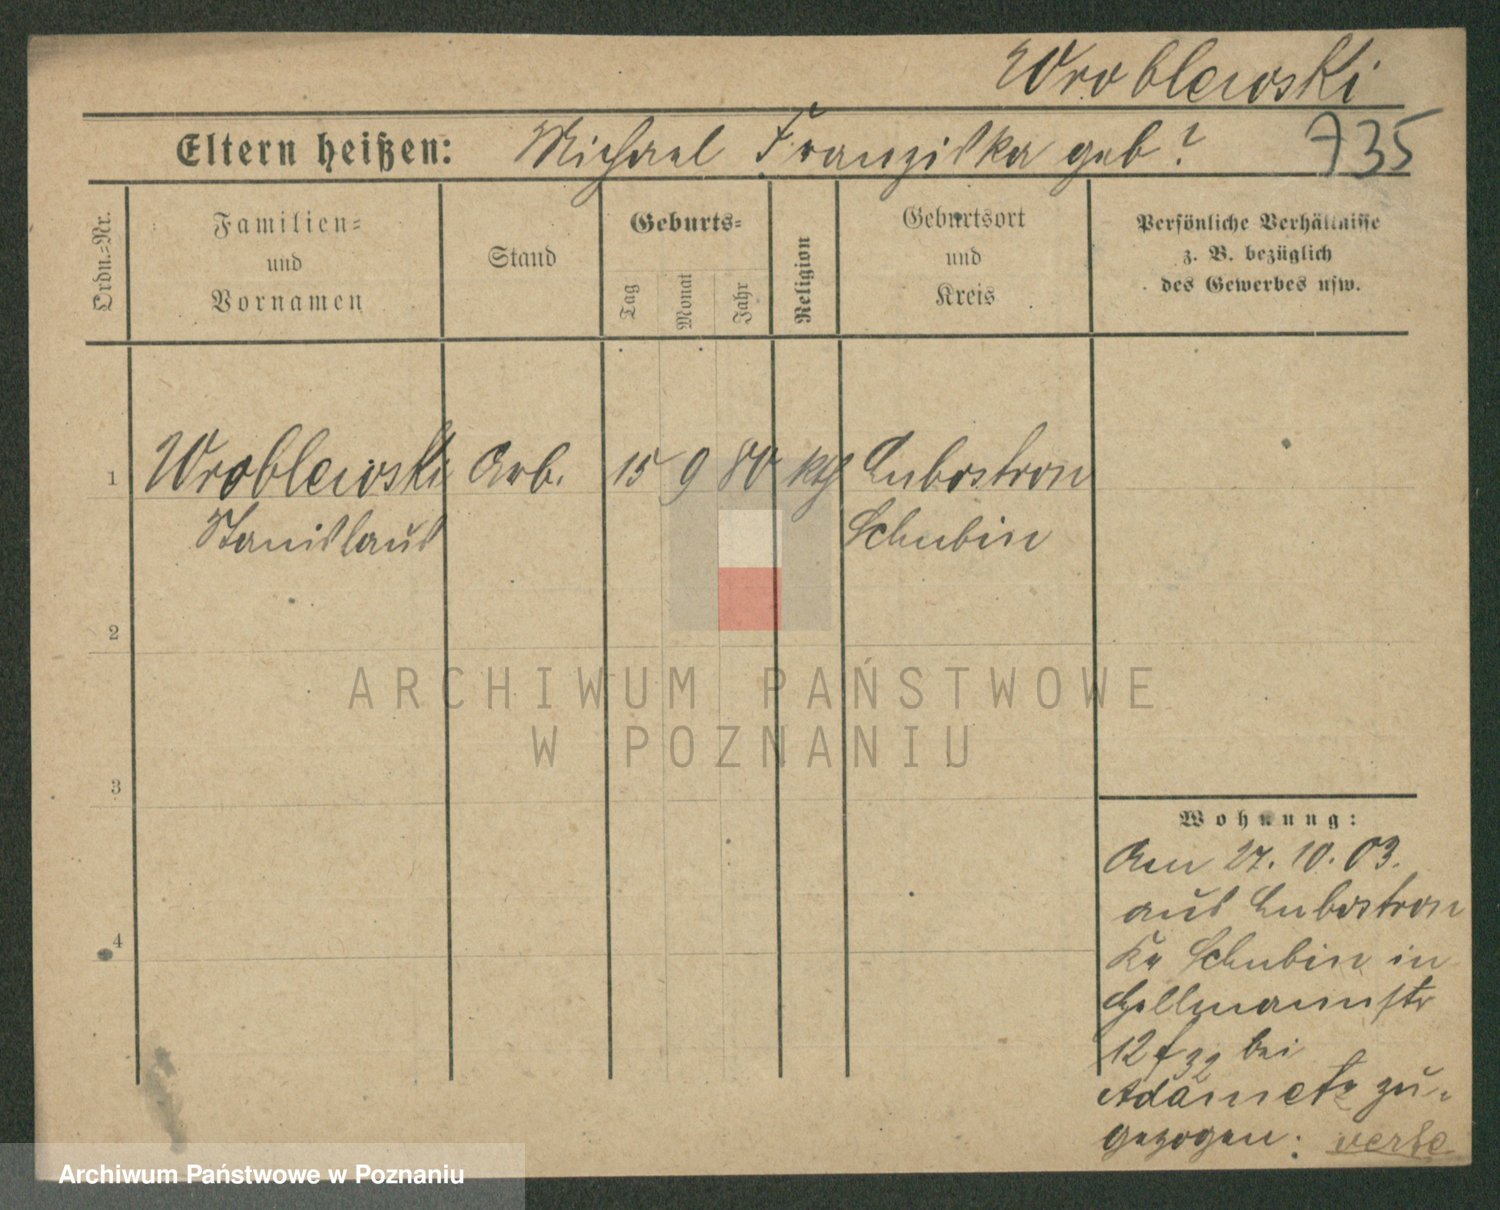 Wroblewski
Eltern heißen: Michael Franziska geb?
735
Ordn.-Nr.
Familien-
und
Vornamen
Stand
Geburts-
Tag
Monat
Jahr
Religion
Geburtsort
und
Kreis
Persönliche Verhältnisse
z. B. bezüglich
des Gewerbes usw.
1 Wroblewski Arb. 15 9 80 kth Lubostron
Stanislaus Schubin
2
3
4
Wohnung:
Am 27. 10. 03.
aus Lubostron
Kr Schubin in
12 bei
zu-
gezogen. verte
ARCHIWUM PAŃSTWOWE
W POZNANIU
Archiwum Państwowe w Poznaniu